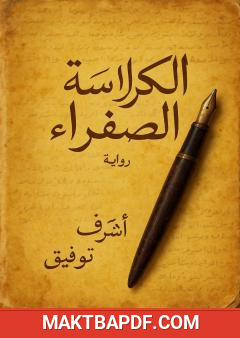 الكراسَة
الصفراء
رواية
أشرف
توفيق
MAKTBAPDF.COM